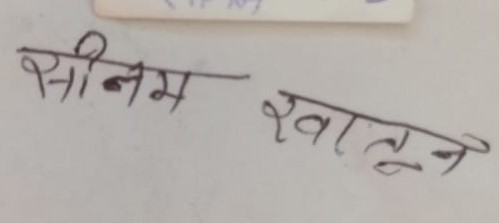 सीनम खातून